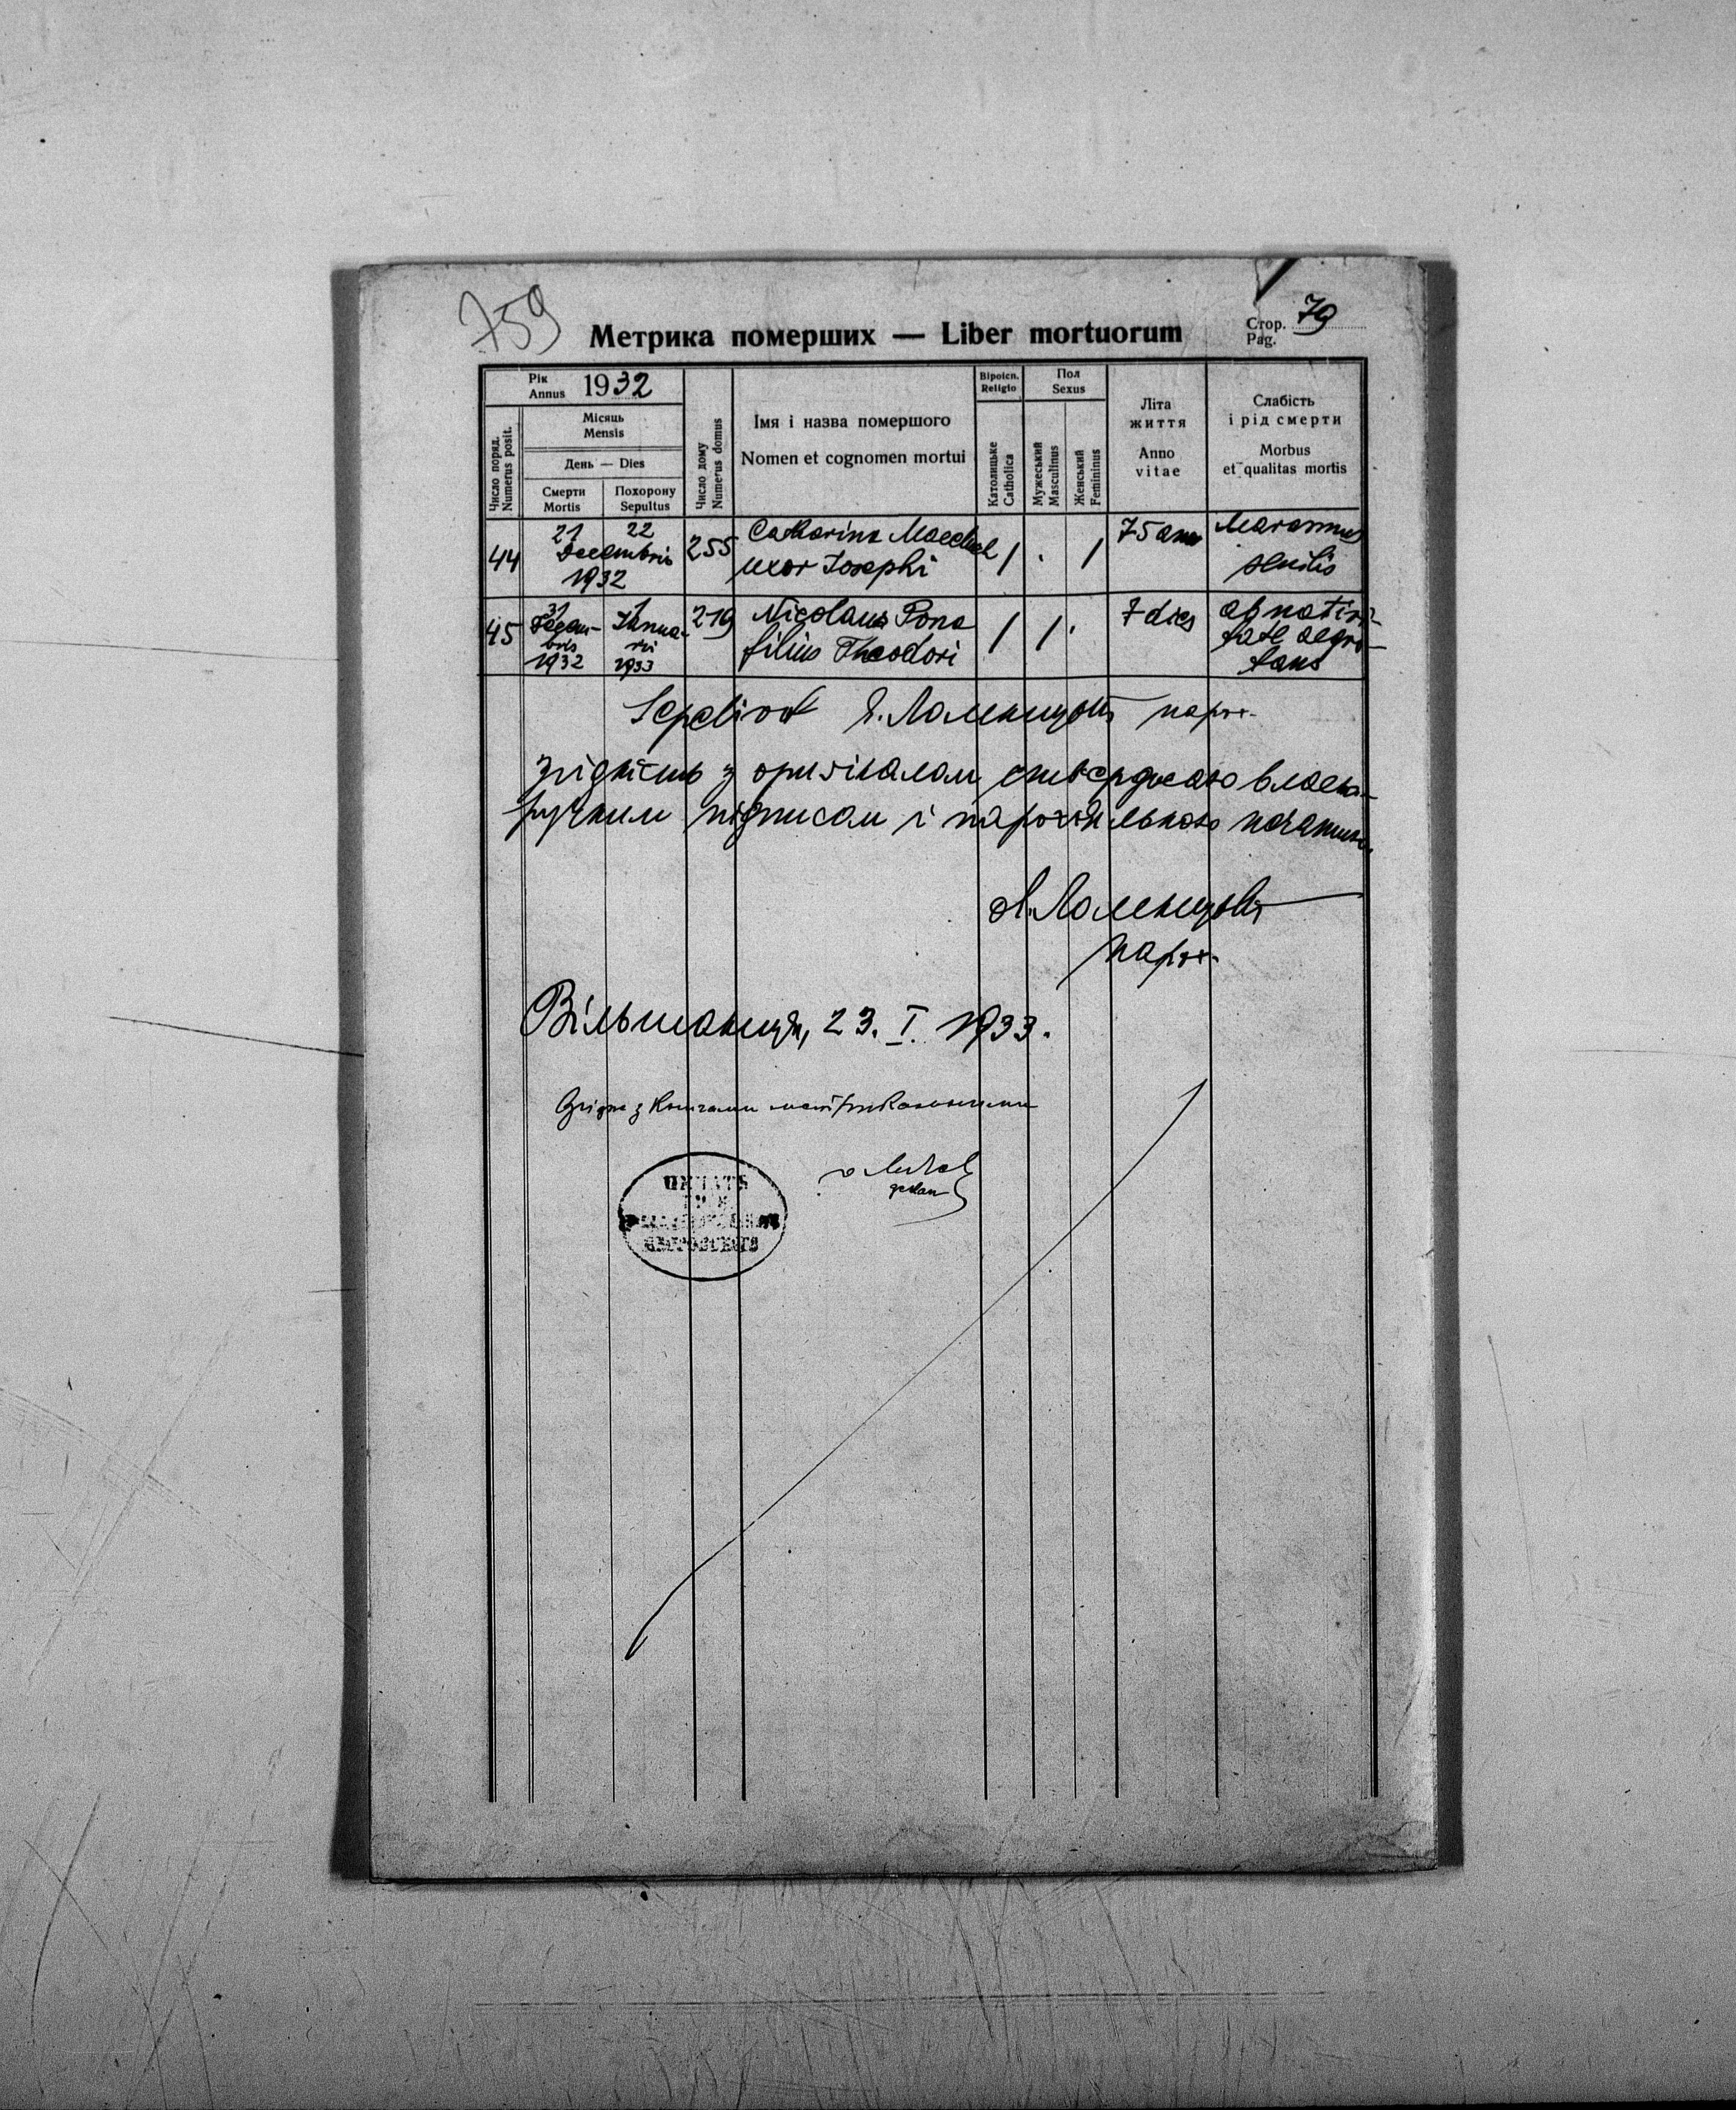 759
Метрика померших — Liber mortuorum
Стор. 79
Pag.
Рік
Annus 1932
Місяць
Mensis
День — Dies
Смерти
Mortis
Похорону
Sepultus
Число поряд.
Numerus posit.
Число дому
Numerus domus
Імя і назва помершого
Nomen et cognomen mortui
Віроісп.
Religio
Католицьке
Catholica
Пол
Sexus
Мужеський
Masculinus
Женський
Femininus
Літа
життя
Anno
vitae
Слабість
і рід смерти
Morbus
et qualitas mortis
44
21 22
Decembris
1932
255
Catharina
uxor Josephi
/ · /
75 ann
Marasmus
senilis
45
31
Decem-
bris
1932
1
Janua-
rii
1933
219
Nicolaus Pona
filius Theodori
/ / ·
7 dies
ab nativi-
tate aegro-
tans
Sepelivit парох
Згідність з оригіналом стверджаю власно-
ручним підписом і парохіяльною печаткою.
парох
Вільшаниця, 23. I. 1933.
Згідне з книгами метрикальними
декан
ПЕЧАТЬ